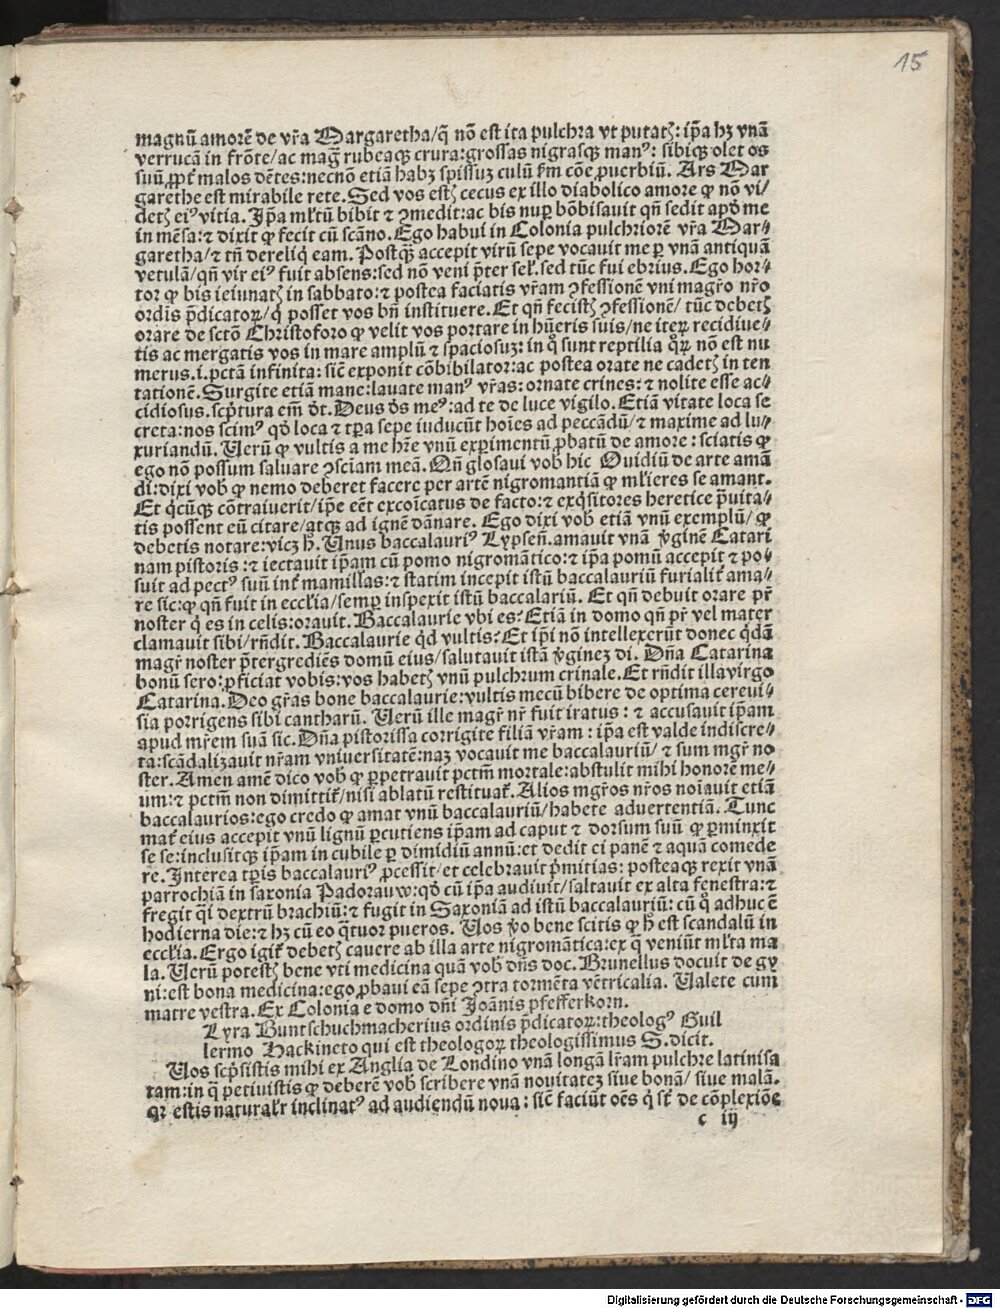 15
magnū amorē de vr̄a Margaretha/q̄ nō est ita pulchra vt putatꝭ: ip̄a hꝫ vnā
verrucā in frōte/ac maḡ rubeaqꝫ crura: grossas nigrasqꝫ manꝰ: sibiqꝫ olet os
suū ꝓpt̄ malos dētes: necnō etiā habꝫ spissuꝫ culū ẜm cōe ꝓuerbiū. Ars Mar
garethe est mirabile rete. Sed vos estꝭ cecus ex illo diabolico amore ꝙ nō vi⸗
detꝭ eiꝰ vitia. Ip̄a ml̄tū bibit ⁊ ꝯmedit: ac bis nuꝑ bōbisauit qn̄ sedit apd̄ me
in mēsa: ⁊ dixit ꝙ fecit cū scāno. Ego habui in Colonia pulchriorē vr̄a Mar⸗
garetha/⁊ tn̄ dereliq̄ eam. Postqꝫ accepit virū sepe vocauit me ꝑ vnā antiquā
vetulā/qn̄ vir eiꝰ fuit absens: sed nō veni p̄ter sel̄. sed tūc fui ebrius. Ego hor⸗
tor ꝙ bis ieiunatꝭ in sabbato: ⁊ postea faciatis vr̄am ꝯfessionē vni magr̄o nr̄o
ordis p̄dicatoꝝ/q̇ posset vos bn̄ instituere. Et qn̄ fecistꝭ ꝯfessionē/ tūc debetꝭ
orare de sctō Christoforo ꝙ velit vos portare in hūeris suis/ne iteꝝ recidiue⸗
tis ac mergatis vos in mare amplū ⁊ spaciosuꝫ: in q̊ sunt reptilia q̊ꝝ nō est nu
merus. i. pctā infinita: sic̄ exponit cōbibilator: ac postea orate ne cadetꝭ in ten
tationē. Surgite etiā mane: lauate manꝰ vr̄as: ornate crines: ⁊ nolite esse ac⸗
cidiosus. scp̄tura em̄ dt̄. Deus ds̄ meꝰ: ad te de luce vigilo. Etiā vitate loca se
creta: nos scimꝰ qd̄ loca ⁊ tp̄a sepe iuducūt hoīes ad peccādū/⁊ maxime ad lu⸗
xuriandū. Verū ꝙ vultis a me hr̄e vnū exꝑimentū ꝓbatū de amore: sciatis ꝙ
ego nō possum saluare ꝯsciam̄ meā. Qn̄ glosaui vob̄ hic Ouidiū de arte amā
di: dixi vob̄ ꝙ nemo deberet facere per artē nigromantiā ꝙ ml̄ieres se amant.
Et q̇cūqꝫ cōtraiuerit/ip̄e eēt excoīcatus de facto: ⁊ exq̇sitores heretice p̄uita⸗
tis possent eū citare/atqꝫ ad ignē dānare. Ego dixi vob̄ etiā vnū exemplū/ ꝙ
debetis notare: vicꝫ h̄. Unus baccalauriꝰ Lypsen̄. amauit vnā v̄ginē Catari
nam pistoris: ⁊ iectauit ip̄am cū pomo nigromātico: ⁊ ip̄a pomū accepit ⁊ po⸗
suit ad pectꝰ suū int̄ mamillas: ⁊ statim incepit istū baccalauriū furialit̄ ama⸗
re sic: ꝙ qn̄ fuit in eccl̄ia/semꝑ inspexit istū baccalariū. Et qn̄ debuit orare pr̄
noster q̇ es in celis: orauit. Baccalaurie vbi es? Etiā in domo qn̄ pr̄ vel mater
clamauit sibi/rn̄dit. Baccalaurie qd̄ vultis? Et ip̄i nō intellexerūt donec q̇dā
magr̄ noster p̄tergrediēs domū eius/salutauit istā v̄gineꝫ di. Dn̄a Catarina
bonū sero: ꝓficiat vobis: vos habetꝭ vnū pulchrum crinale. Et rn̄dit illa virgo
Catarina. Deo gr̄as bone baccalaurie: vultis mecū bibere de optima cereui⸗
sia porrigens sibi cantharū. Verū ille magr̄ nr̄ fuit iratus: ⁊ accusauit ip̄am
apud mr̄em suā sic. Dn̄a pistorissa corrigite filiā vr̄am: ip̄a est valde indiscre⸗
ta: scādalizauit nr̄am vniuersitatē: naꝫ vocauit me baccalauriū/ ⁊ sum mgr̄ no
ster. Amen amē dico vob̄ ꝙ ꝑpetrauit pctm̄ mortale: abstulit mihi honorē me⸗
um: ⁊ pctm̄ non dimittit̄/nisi ablatū restituat̄. Alios mgr̄os nr̄os noīauit etiā
baccalaurios: ego credo ꝙ amat vnū baccalauriū/habete aduertentiā. Tunc
mat̄ eius accepit vnū lignū ꝑcutiens ip̄am ad caput ⁊ dorsum suū ꝙ ꝑminxit
se se: inclusitqꝫ ip̄am in cubile ꝑ dimidiū annū: et dedit ei panē ⁊ aquā comede
re. Interea tp̄is baccalauriꝰ ꝓcessit/et celebrauit p̄mitias: posteaqꝫ rexit vnā
parrochiā in saxonia Padorauw: qd̄ cū ip̄a audiuit/saltauit ex alta fenestra: ⁊
fregit q̄i dextrū brachiū: ⁊ fugit in Saxoniā ad istū baccalauriū: cū q̊ adhuc ē
hodierna die: ⁊ hꝫ cū eo q̄tuor pueros. Vos v̄o bene scitis ꝙ h̄ est scandalū in
eccl̄ia. Ergo igit̄ debetꝭ cauere ab illa arte nigromātica: ex q̄ veniūt ml̄ta ma
la. Verū potestꝭ bene vti medicina quā vob̄ dn̄s doc. Brunellus docuit de gy
ni: est bona medicina: ego ꝓbaui eā sepe ꝯtra tormēta vētricalia. Valete cum
matre vestra. Ex Colonia e domo dn̄i Joānis pfefferkorn.
Lyra Buntschuchmacherius ordinis p̄dicatoꝝ: theologꝰ Guil
lermo Hackineto qui est theologoꝝ theologissimus S. dicit.
Vos scp̄sistis mihi ex Anglia de Londino vnā longā lr̄am pulchre latinisa
tam: in q̄ petiuistis ꝙ deberē vob̄ scribere vnā nouitateꝫ siue bonā/ siue malā.
qꝛ estis natural̄r inclinatꝰ ad audiendū noua: sic̄ faciūt oēs q̇ st̄ de cōplexiōe
c iij
Digitalisierung gefördert durch die Deutsche Forschungsgemeinschaft - DFG